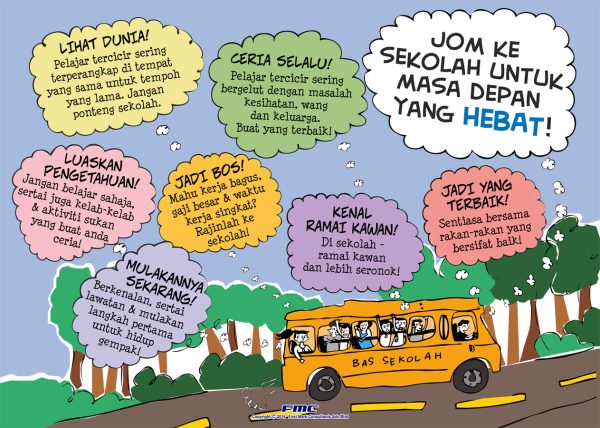 LIHAT DUNIA!
Pelajar tercicir sering
terperangkap di tempat
yang sama untuk tempoh
yang lama. Jangan
ponteng sekolah.
CERIA SELALU!
Pelajar tercicir sering
bergelut dengan masalah
kesihatan, wang
dan keluarga.
Buat yang terbaik!
JOM KE
SEKOLAH UNTUK
MASA DEPAN
YANG HEBAT!
LUASKAN
PENGETAHUAN!
Jangan belajar sahaja,
sertai juga kelab-kelab
& aktiviti sukan
yang buat anda
ceria!
JADI BOS!
Mahu kerja bagus,
gaji besar & waktu
kerja singkat?
Rajinlah ke
sekolah!
KENAL
RAMAI KAWAN!
Di sekolah -
ramai kawan
dan lebih seronok!
JADI YANG
TERBAIK!
Sentiasa bersama
rakan-rakan yang
bersifat baik!
MULAKANNYA
SEKARANG!
Berkenalan, sertai
lawatan & mulakan
langkah pertama
untuk hidup
gempak!
BAS SEKOLAH
FMC